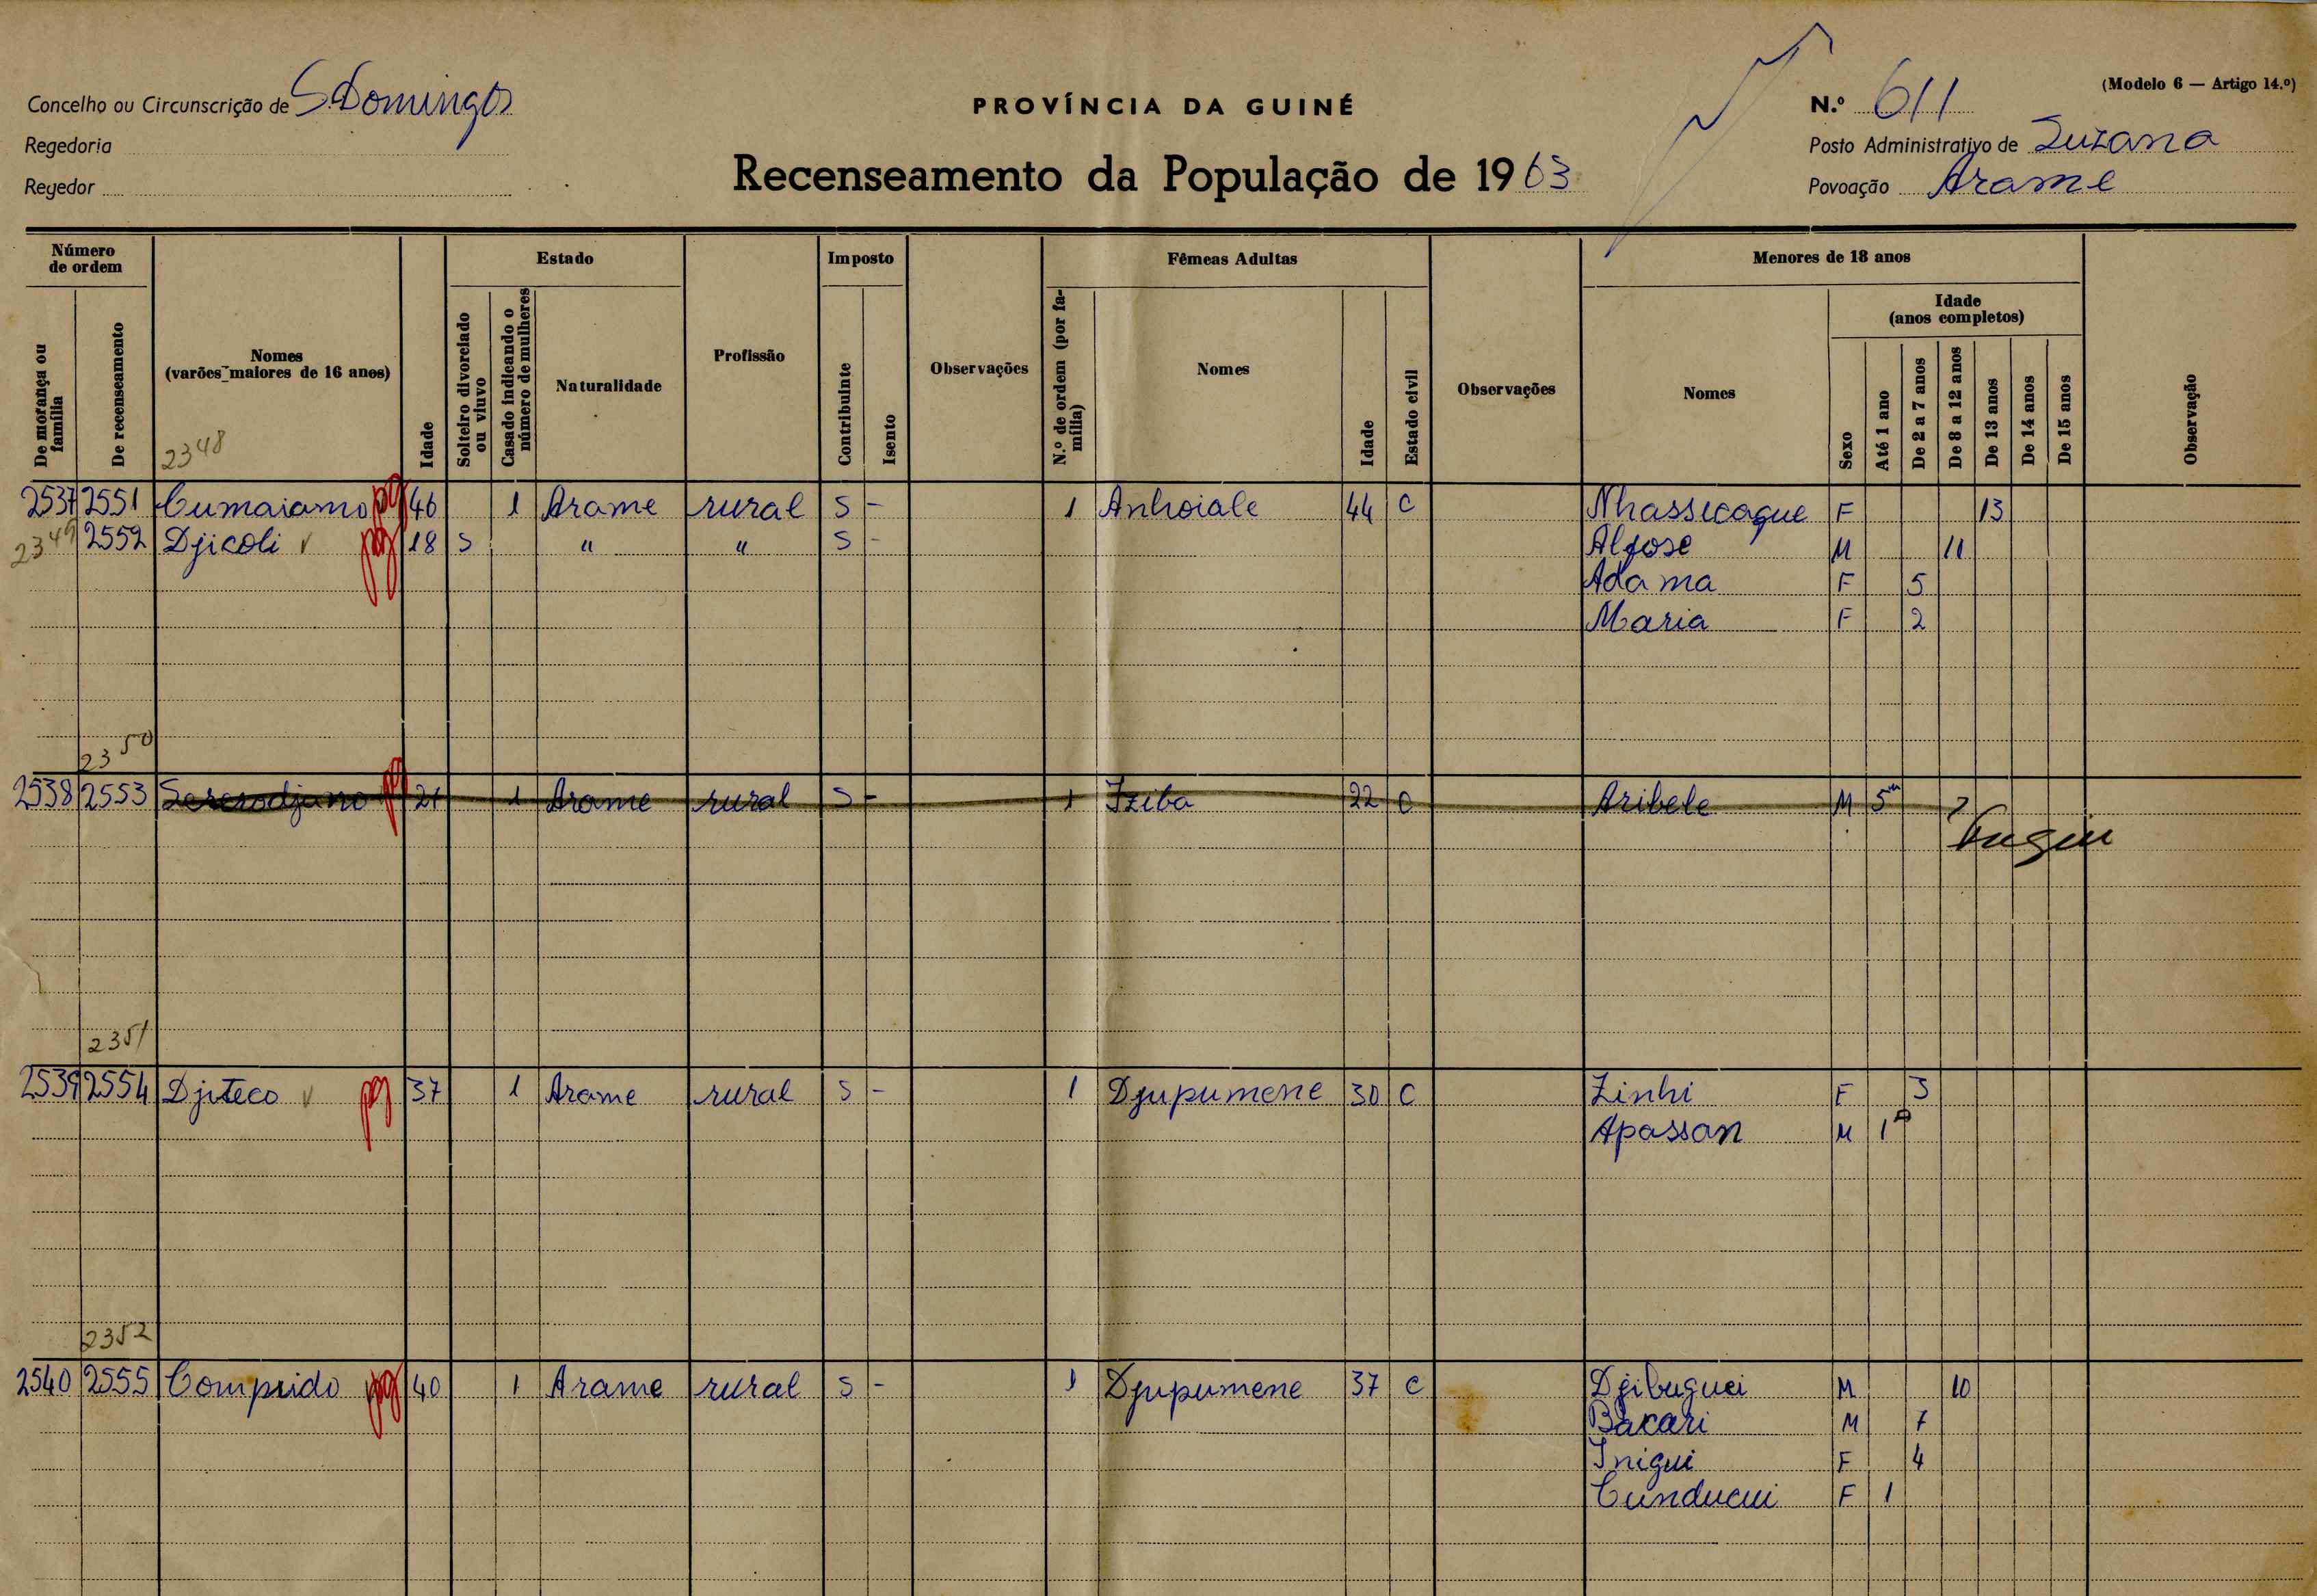 Concelho ou Circunscrição de S. Domingos
Regedoria
Regedor
PROVÍNCIA DA GUINÉ
Recenseamento da População de 1963
(Modelo 6 — Artigo 14.º)
N.º 611
Posto Administrativo de Suzana
Povoação Arame
Número de ordem
De morança ou família
De recenseamento
Nomes (varões maiores de 16 anos)
Idade
Estado
Solteiro divorciado ou viuvo
Casado indicando o número de mulheres
Naturalidade
Profissão
Imposto
Contribuinte
Isento
Observações
Fêmeas Adultas
N.º de ordem (por família)
Nomes
Idade
Estado civil
Observações
Menores de 18 anos
Nomes
Sexo
Idade (anos completos)
Até 1 ano
De 2 a 7 anos
De 8 a 12 anos
De 13 anos
De 14 anos
De 15 anos
Observação
2348
2537 2551 Cumaiamo pg 46 1 Arame rural S - 1 Anhoiale 44 C Nhassecaque F 13
2349 2552 Djicoli pg 18 S " " S - Alfose M 11
Adama F 5
Maria F 2
2350
2538 2553 pg 21 1 Arame rural S - 1 Iziba 22 C Aribele M 5m
2351
2539 2554 Djiteco pg 37 1 Arame rural S - 1 Djupumene 30 C Zinhi F 3
Apassan M 1
2352
2540 2555 Comprido pg 40 1 Arame rural S - 1 Djupumene 37 C Djibuguei M 10
Bacari M 7
Inigui F 4
Cunducui F 1